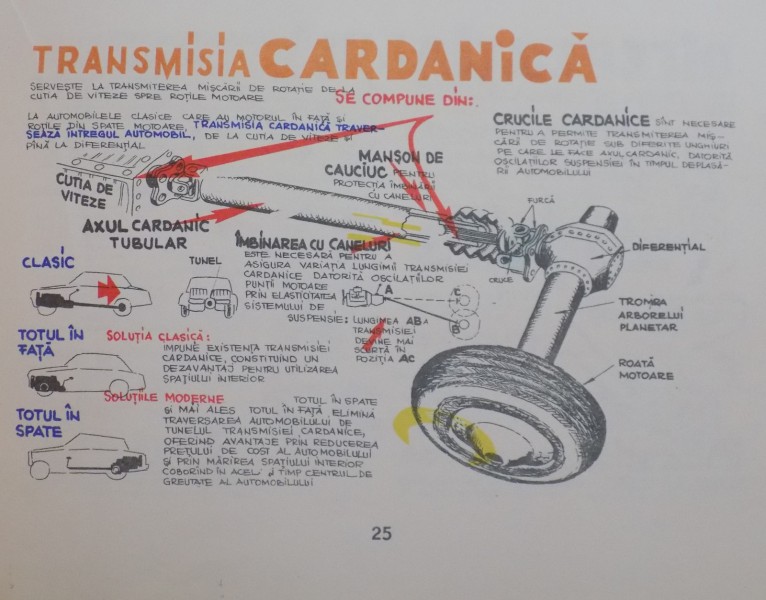 TRANSMISIA CARDANICĂ
SERVEȘTE LA TRANSMITEREA MIȘCĂRII DE ROTAȚIE DE LA
CUTIA DE VITEZE SPRE ROȚILE MOTOARE
SE COMPUNE DIN:
LA AUTOMOBILELE CLASICE CARE AU MOTORUL ÎN FAȚĂ ȘI
ROȚILE DIN SPATE MOTOARE, TRANSMISIA CARDANICĂ TRAVER-
SEAZĂ ÎNTREGUL AUTOMOBIL, DE LA CUTIA DE VITEZE ȘI
PÎNĂ LA DIFERENȚIAL
CRUCILE CARDANICE SÎNT NECESARE
PENTRU A PERMITE TRANSMITEREA MIȘ-
CĂRII DE ROTAȚIE SUB DIFERITE UNGHIURI
PE CARE LE FACE AXUL CARDANIC, DATORITĂ
OSCILAȚIILOR SUSPENSIEI ÎN TIMPUL DEPLASĂ-
RII AUTOMOBILULUI
MANȘON DE
CAUCIUC PENTRU
PROTECȚIA ÎMBINĂRII
CU CANELURI
CUTIA DE
VITEZE
AXUL CARDANIC
TUBULAR
FURCĂ
CRUCE
DIFERENȚIAL
TROMPA
ARBORELUI
PLANETAR
ROATĂ
MOTOARE
ÎMBINAREA CU CANELURI
ESTE NECESARĂ PENTRU A
ASIGURA VARIAȚIA LUNGIMII TRANSMISIEI
CARDANICE DATORITĂ OSCILAȚIILOR
PUNȚII MOTOARE
PRIN ELASTICITATEA
SISTEMULUI DE
SUSPENSIE: LUNGIMEA AB A
TRANSMISIEI
DEVINE MAI
SCURTĂ ÎN
POZIȚIA AC
A
C
B
CLASIC
TUNEL
TOTUL ÎN
FAȚĂ
SOLUȚIA CLASICĂ:
IMPUNE EXISTENȚA TRANSMISIEI
CARDANICE, CONSTITUIND UN
DEZAVANTAJ PENTRU UTILIZAREA
SPAȚIULUI INTERIOR
TOTUL ÎN
SPATE
SOLUȚIILE MODERNE TOTUL ÎN SPATE
ȘI MAI ALES TOTUL ÎN FAȚĂ, ELIMINĂ
TRAVERSAREA AUTOMOBILULUI DE
TUNELUL TRANSMISIEI CARDANICE,
OFERIND AVANTAJE PRIN REDUCEREA
PREȚULUI DE COST AL AUTOMOBILULUI
ȘI PRIN MĂRIREA SPAȚIULUI INTERIOR
COBORÎND ÎN ACELAȘI TIMP CENTRUL DE
GREUTATE AL AUTOMOBILULUI
25